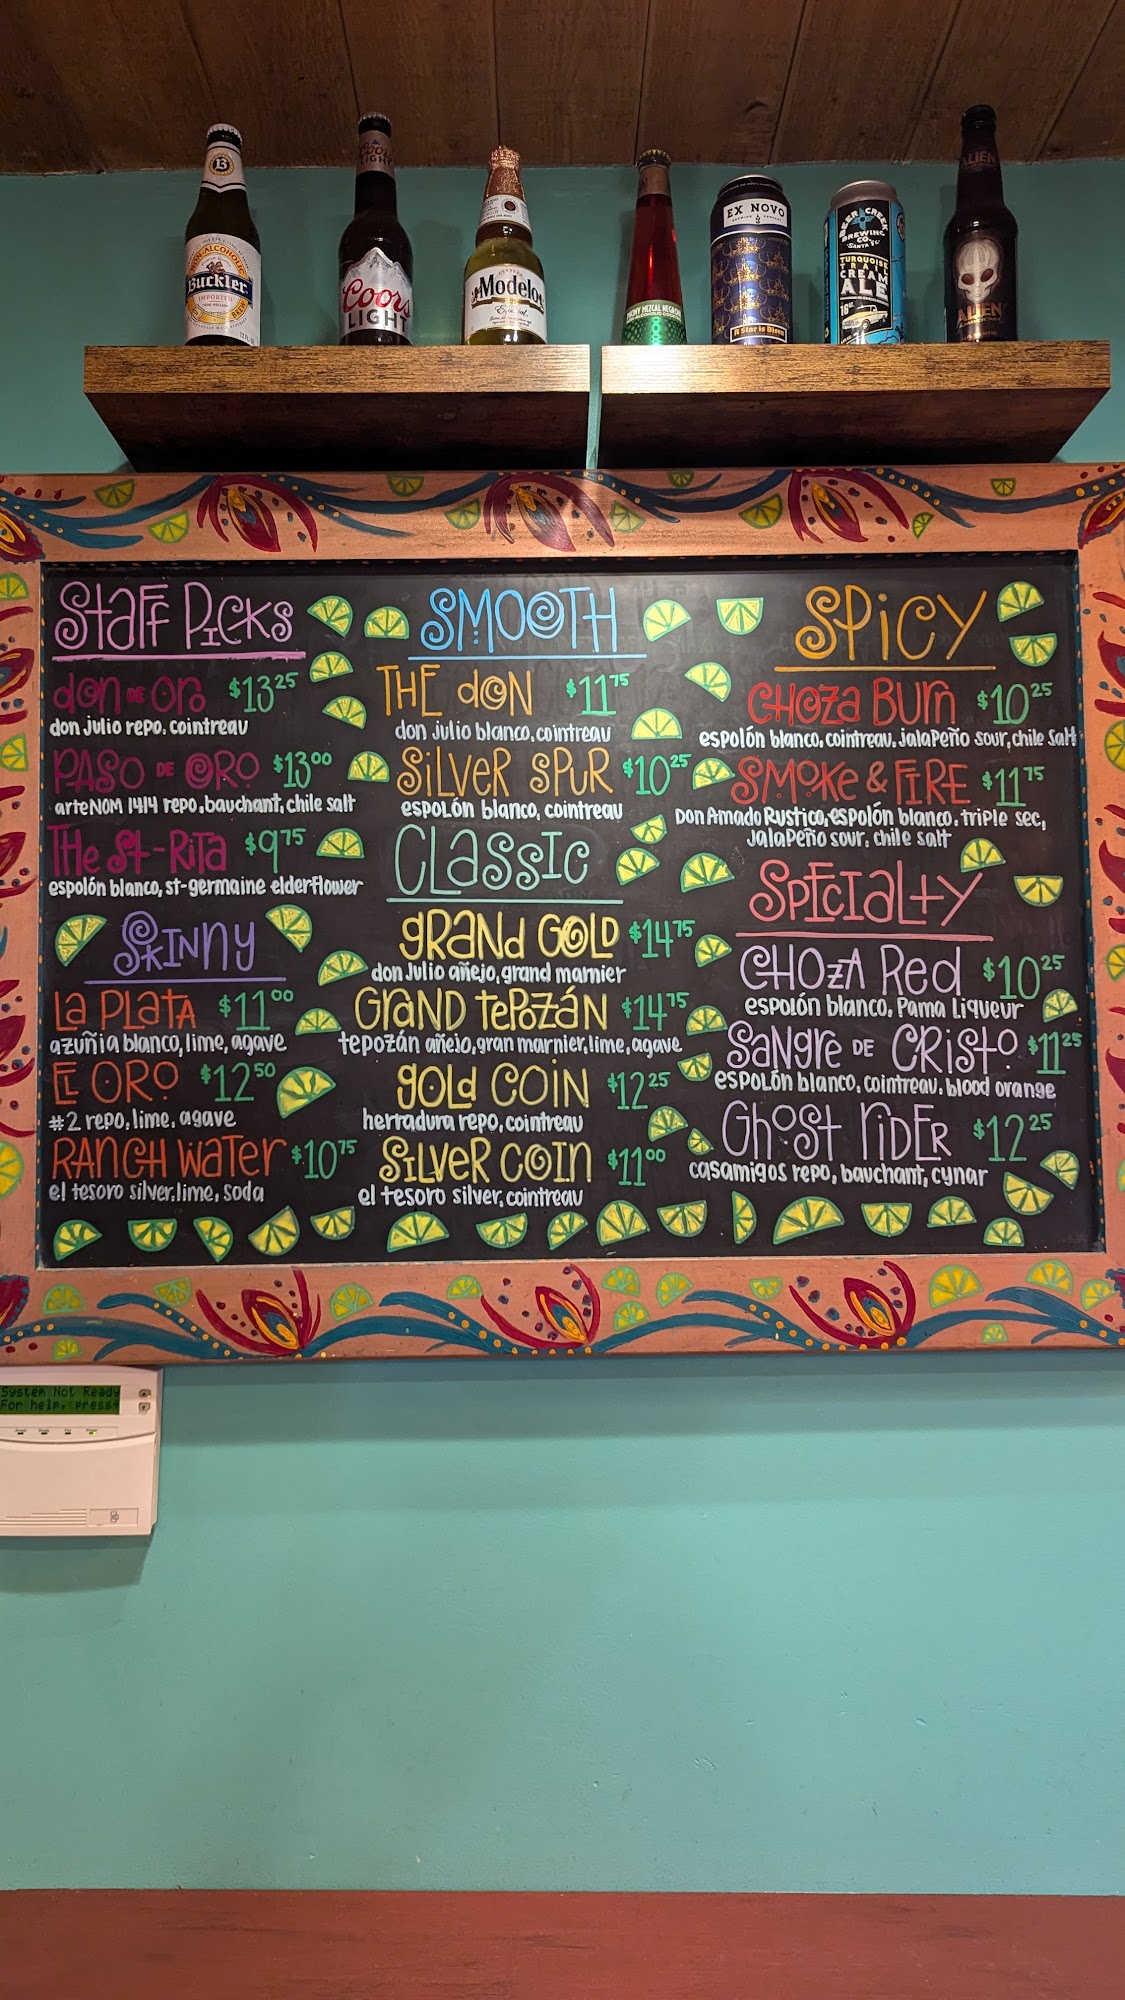 Buckler
IMPORTED
Coors
LIGHT
Coors
LIGHT
Modelo
Especial
EX NOVO
A Star is Bjorn
BEER CREEK
BREWING
CO.
SANTA FE
TURQUOISE
TRAIL
CREAM
ALE
16oz
ALIEN
ALIEN
Staff Picks
don de Oro $13.25
don julio repo, cointreau
PASO DE ORO $13.00
arteNOM 1414 repo, bauchant, chile salt
The St-Rita $9.75
espolón blanco, st-germaine elderflower
Skinny
La Plata $11.00
azuñia blanco, lime, agave
El Oro $12.50
#2 repo, lime, agave
Ranch Water $10.75
el tesoro silver, lime, soda
SMOOTH
THE dON $11.75
don julio blanco, cointreau
Silver Spur $10.25
espolón blanco, cointreau
Classic
Grand Gold $14.75
don Julio añejo, grand marnier
Grand Tepozán $14.75
tepozán añejo, gran marnier, lime, agave
Gold Coin $12.25
herradura repo, cointreau
Silver Coin $11.00
el tesoro silver, cointreau
Spicy
Choza Burn $10.25
espolón blanco, cointreau, jalapeño sour, chile salt
Smoke & Fire $11.75
Don Amado Rustico, espolón blanco, triple sec,
jalapeño sour, chile salt
Specialty
Choza Red $10.25
espolón blanco, Pama Liqueur
Sangre de Cristo $11.25
espolón blanco, cointreau, blood orange
Ghost Rider $12.25
casamigos repo, bauchant, cynar
System Not Ready
For help, press